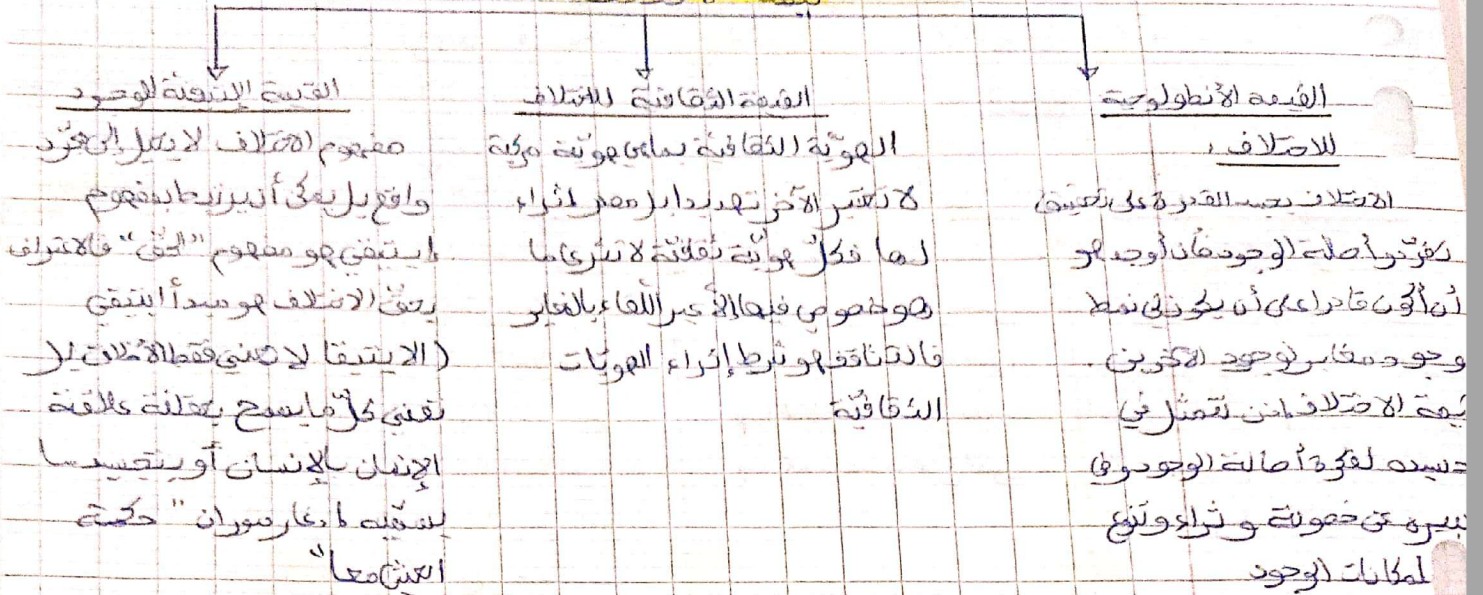 القيمة الأنطولوجية
للاختلاف :
الاختلاف يجسد القدرة على تحقيق
تفرّد وأصالة الوجود فأن أوجد هو
أن أكون قادرا على أن يكون لي نمط
وجود مغاير لوجود الآخرين .
قيمة الاختلاف إذن تتمثل في
تجسيده لفكرة أصالة الوجود وفي
تعبيره عن خصوبة و ثراء وتنوع
إمكانات الوجود
القيمة الثقافية للاختلاف
الهويّة الثقافية بما هي هويّة مركبة
لا تعتبر الآخر تهديدا بل مصدر إثراء
لها فكلّ هويّة ثقافيّة لا تثري ما
هو خصوصي فيها إلاّ عبر اللقاء بالمغاير
فالتثاقف هو شرط إثراء الهويّات
الثقافيّة
القيمة الإيتيقية للوجود
مفهوم الاختلاف لا يحيل إلى مجرّد
واقع بل يمكن أن يرتبط بمفهوم
إيتيقي هو مفهوم "الحقّ" فالاعتراف
بحقّ الاختلاف هو مبدأ ايتيقي
(الايتيقا لا تعني فقط الأخلاق بل
تعني كلّ ما يسمح بعقلنة علاقة
الإنسان بالإنسان أو بتجسيد ما
يسمّيه إدغار موران "حكمة
العيش معا"